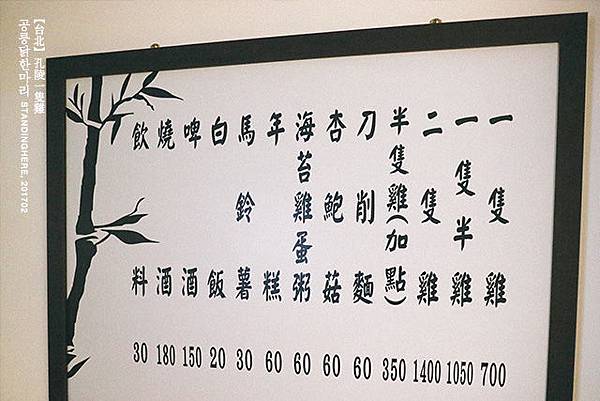 一隻雞 700
一隻半雞 1050
二隻雞 1400
半隻雞(加點) 350
刀削麵 60
杏鮑菇 60
海苔雞蛋粥 60
年糕 60
馬鈴薯 30
白飯 20
啤酒 150
燒酒 180
飲料 30
【台北】孔陵一隻雞
공릉닭한마리 STANDINGHERE, 201702